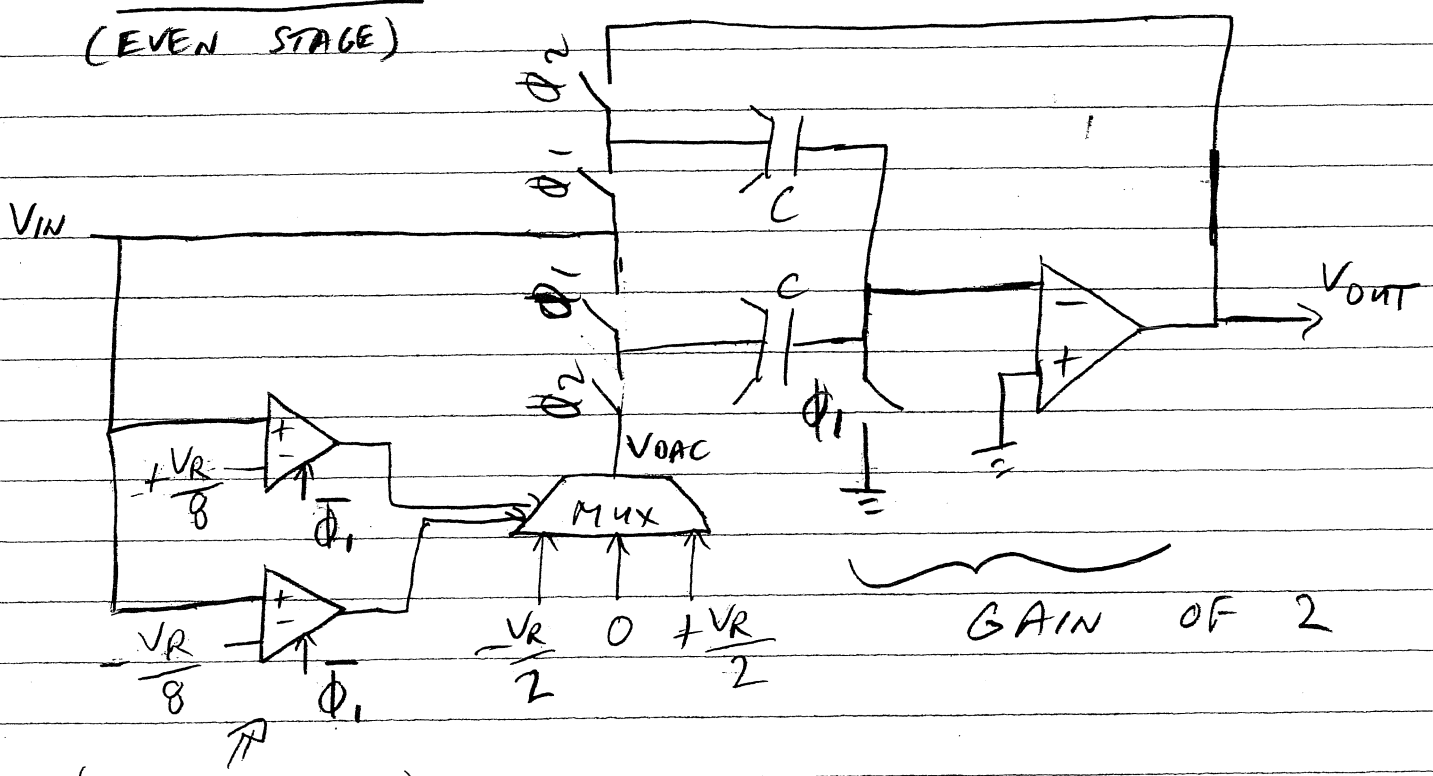 (EVEN STAGE)
ϕ2
ϕ1
C
VIN
ϕ1
C
VOUT
−
+
ϕ2
ϕ1
VDAC
+
−
+VR/8
ϕ̅1
MUX
+
−
−VR/8
ϕ̅1
−VR/2 0 +VR/2
GAIN OF 2